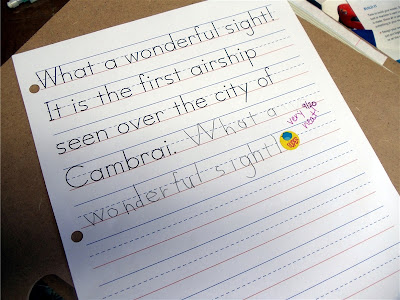 What a wonderful sight!
It is the first airship
seen over the city of
Cambrai. What a
wonderful sight!
very
neat!